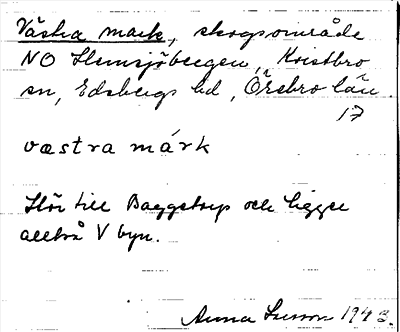 Västra mark, skogsområde
NO Hemsjöbergen, Kvistbro
sn, Edsbergs hd, Örebro län
17
væstra márk
Hör till Baggetorp och ligger
alltså V byn.
Anna 1943.